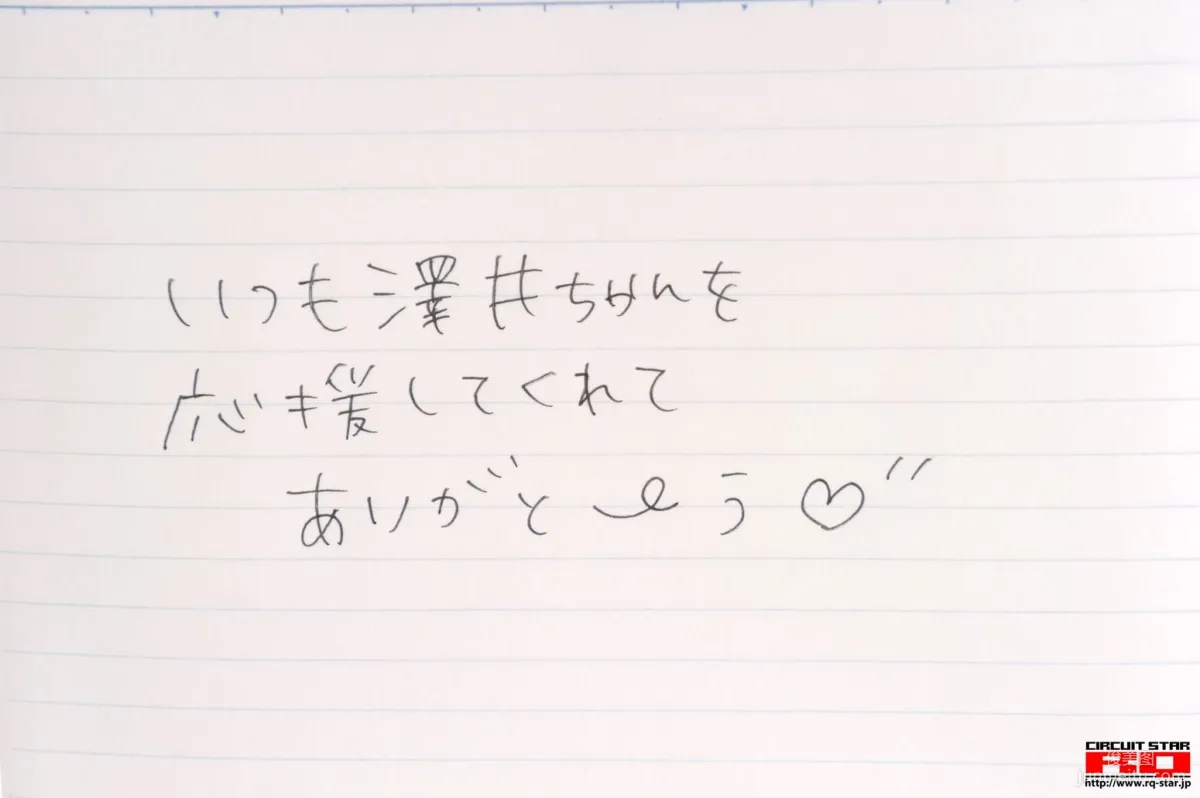 いつも澤井ちかんを
応援してくれて
ありがと〜う♡〃
CIRCUIT STAR
RQ
http://www.rq-star.jp